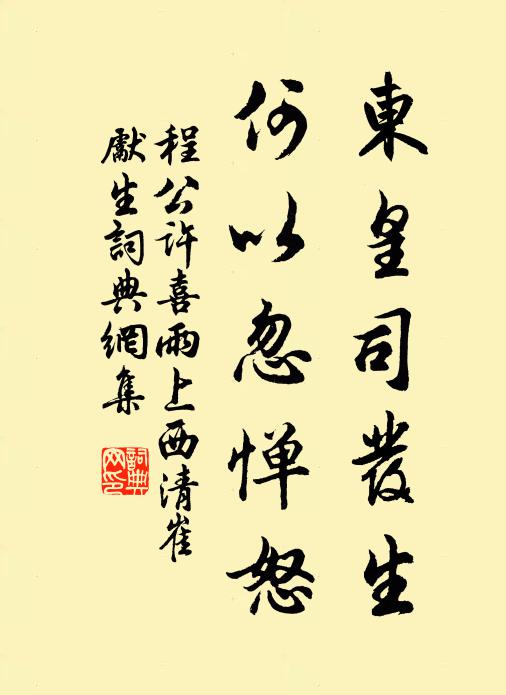 東皇司發生
何以忽惮怒
程公许喜雨上西清崔
獻生詞典網集
詞典
网印